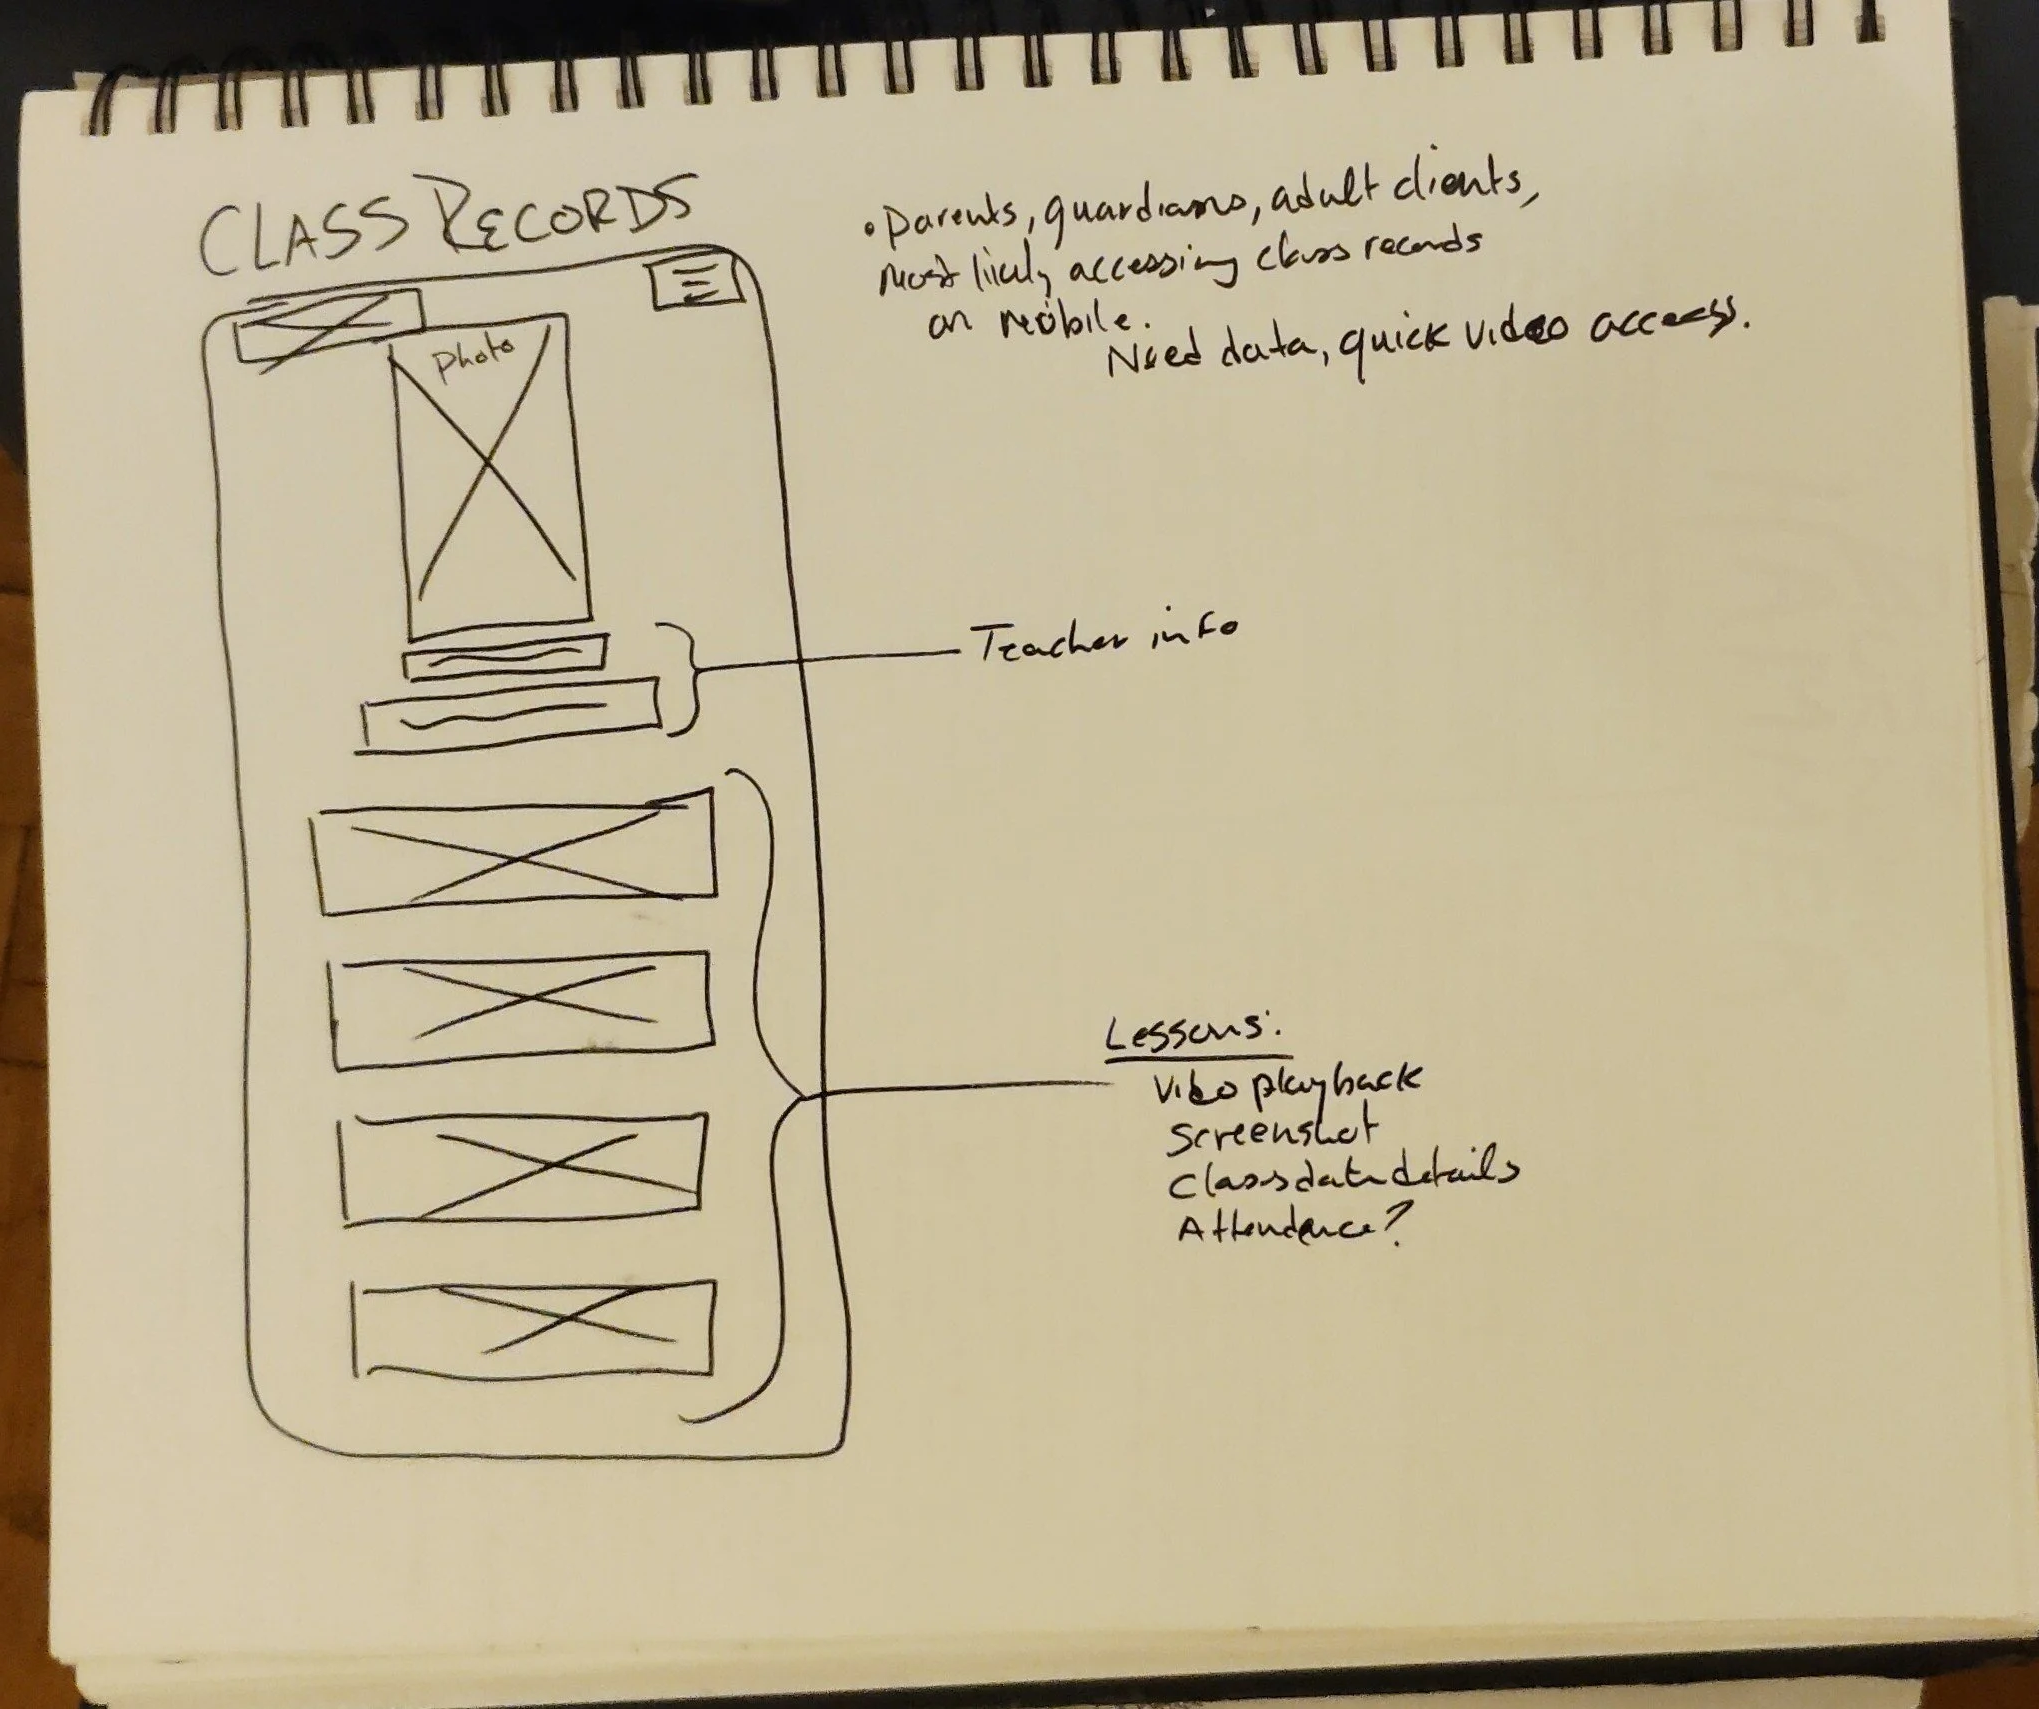 CLASS RECORDS
• Parents, guardians, adult clients,
most likely accessing class records
on mobile.
Need data, quick video access.
photo
Teacher info
Lessons:
Video playback
Screenshot
Class data details
Attendence?